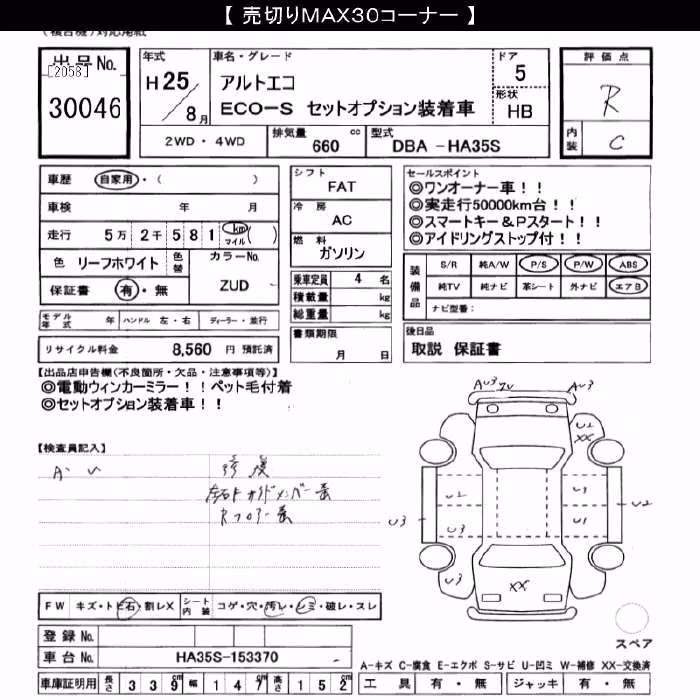 【 売切りMAX30コーナー 】
出品No.
[2058]
30046
年式
H25/8月
車名・グレード
アルトエコ
ECO-S セットオプション装着車
ドア
5
形状
HB
評価点
R
内装
C
2WD・4WD
排気量 660 cc
型式 DBA -HA35S
車歴 自家用・( )
車検 年 月
走行 5万2千581 km マイル ( )
色 リーフホワイト 色替
カラーNo.
ZUD
保証書 有・無
シフト
FAT
冷房
AC
燃料
ガソリン
乗車定員 4 名
積載量 kg
総重量 kg
セールスポイント
◎ワンオーナー車!!
◎実走行50000km台!!
◎スマートキー&Pスタート!!
◎アイドリングストップ付!!
装備品
S/R 純A/W P/S P/W ABS
純TV 純ナビ 革シート 外ナビ エアB
ナビ型番:
モデル年式 年 ハンドル 左・右 ディーラー・並行
リサイクル料金 8,560 円 預託済
書類期限
月 日
後日品
取説 保証書
【出品店申告欄(不良箇所・欠品・注意事項等)】
◎電動ウィンカーミラー!!ペット毛付着
◎セットオプション装着車!!
【検査員記入】
A・U
修復
左右Fサイドメンバー歪
Rフロアー歪
AU3
AU3
U2
XX
U2
U3
U1
U3
U3
U1
U2
U3
XX
U3
スペア
FW キズ・トビ石・割レX
シート内装 コゲ・穴・汚レ・シミ・破レ・スレ
登録No.
車台No. HA35S-153370
A-キズ C-腐食 E-エクボ S-サビ U-凹ミ W-補修 XX-交換済
車庫証明用 長さ 339cm 幅 147cm 高さ 152cm
工具 有・無 ジャッキ 有・無